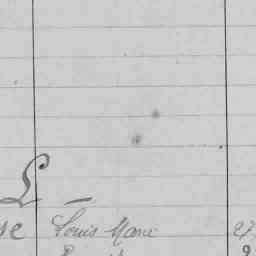 L
se Louis Marie 27